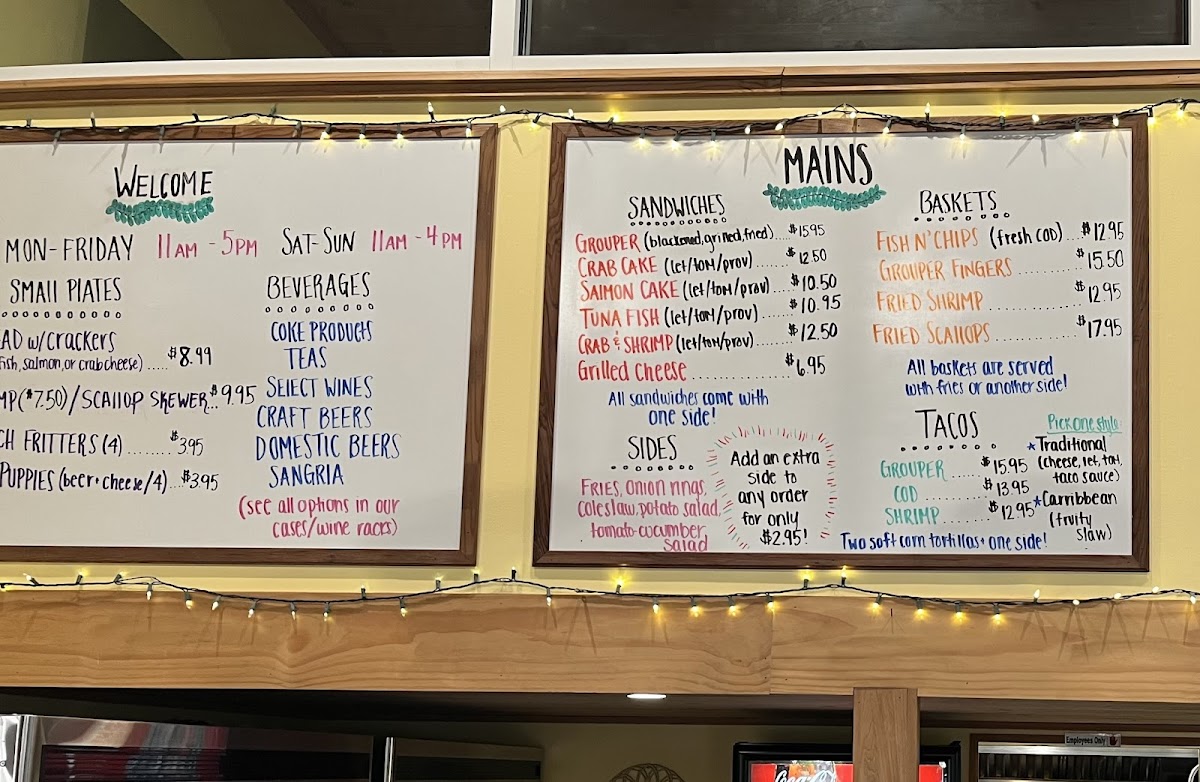 WELCOME
MON-FRIDAY 11AM - 5PM SAT-SUN 11AM - 4PM
SMALL PLATES
AD w/crackers
fish, salmon, or crab cheese) ..... $8.99
MP ($7.50) / SCALLOP SKEWER... $9.95
CH FRITTERS (4) ......... $3.95
PUPPIES (beer + cheese / 4)... $3.95
BEVERAGES
COKE PRODUCTS
TEAS
SELECT WINES
CRAFT BEERS
DOMESTIC BEERS
SANGRIA
(see all options in our
cases/wine races)
MAINS
SANDWICHES
GROUPER (blackened, grilled, fried)..$15.95
CRAB CAKE (let/tom/prov)...... $12.50
SALMON CAKE (let/tom/prov)....$10.50
TUNA FISH (let/tom/prov) ......$10.95
CRAB & SHRIMP (let/tom/prov)......$12.50
Grilled Cheese ............. $6.95
All sandwiches come with
one side!
SIDES
FRIES, onion rings,
coleslaw, potato salad,
tomato-cucumber
salad
Add an extra
side to
any order
for only
$2.95!
BASKETS
FISH N' CHIPS (fresh COD)....$12.95
GROUPER FINGERS .......... $15.50
FRIED SHRIMP ............. $12.95
FRIED SCALLOPS ............ $17.95
All baskets are served
with fries or another side!
TACOS
GROUPER ..... $15.95
COD .......... $13.95
SHRIMP ....... $12.95
Pick one style:
*Traditional
(cheese, let, tom,
taco sauce)
*Carribbean
(fruity
slaw)
Two soft corn tortillas + one side!
Employees Only
Coca-Cola